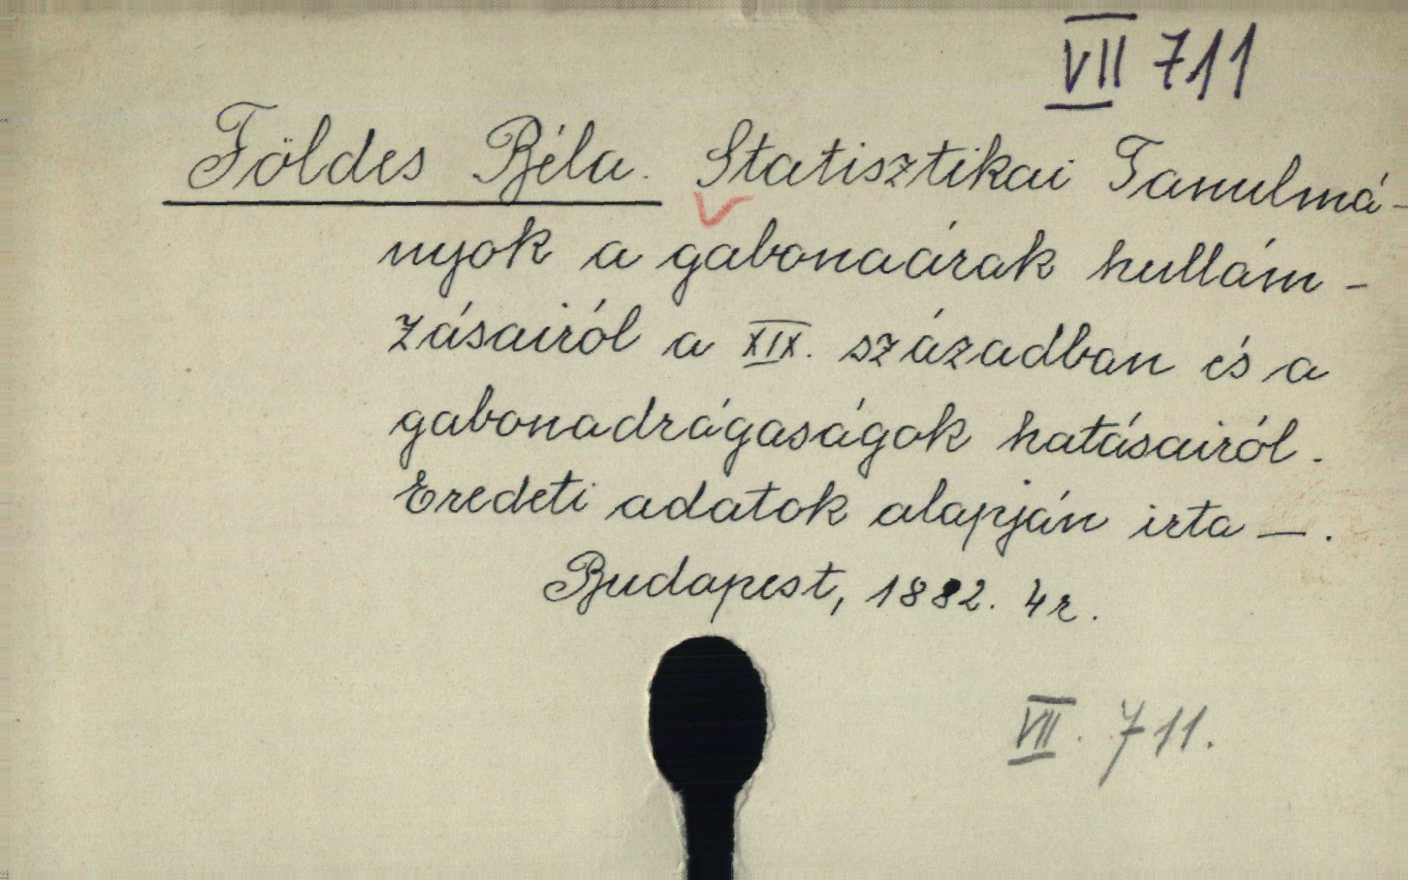 VII 711
Földes Béla. Statisztikai Tanulmá-
nyok a gabonaárak hullám-
zásairól a XIX. században és a
gabonadrágaságok hatásairól.
Eredeti adatok alapján irta —.
Budapest, 1882. 4r.
VII. 711.